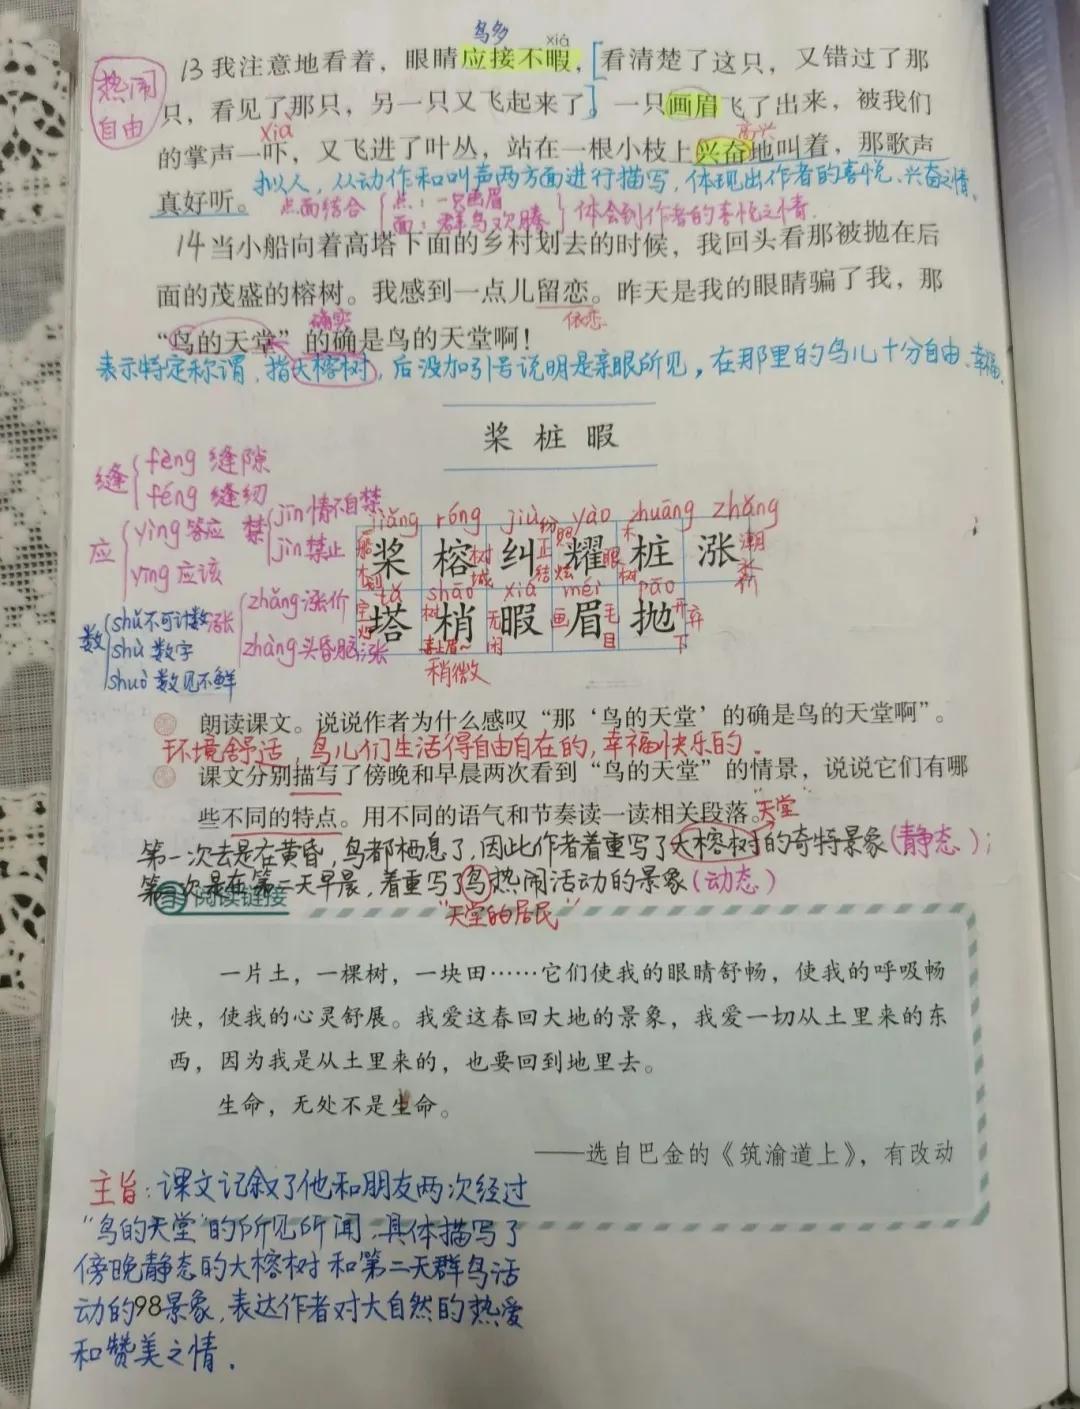 鸟多
xiá
热闹
自由
13 我注意地看着，眼睛应接不暇，[看清楚了这只，又错过了那
只，看见了那只，另一只又飞起来了]。一只画眉飞了出来，被我们
xià
高兴
的掌声一吓，又飞进了叶丛，站在一根小枝上兴奋地叫着，那歌声
真好听。
拟人，从动作和叫声两方面进行描写，体现出作者的喜悦、兴奋之情。
点面结合{点：一只画眉
面：群鸟欢腾}体会到作者的喜悦之情.
14 当小船向着高塔下面的乡村划去的时候，我回头看那被抛在后
面的茂盛的榕树。我感到一点儿留恋。昨天是我的眼睛骗了我，那
确实
依恋
“鸟的天堂”的确是鸟的天堂啊！
表示特定称谓，指大榕树，后没加引号说明是亲眼所见，在那里的鸟儿十分自由、幸福。
桨 桩 暇
缝{fèng 缝隙
féng 缝纫
应{yìng 答应
yīng 应该
禁{jīn 情不自禁
jìn 禁止
数{shǔ 不可计数
shù 数字
shuò 数见不鲜
涨{zhǎng 涨价
zhàng 头昏脑涨
jiǎng róng jiū yào zhuāng zhǎng
桨 榕 纠 耀 桩 涨
tǎ shāo xiá méi pāo
塔 梢 暇 眉 抛
喜上眉～
稍微
朗读课文。说说作者为什么感叹“那‘鸟的天堂’的确是鸟的天堂啊”。
环境舒适，鸟儿们生活得自由自在的，幸福快乐的.
课文分别描写了傍晚和早晨两次看到“鸟的天堂”的情景，说说它们有哪
些不同的特点。用不同的语气和节奏读一读相关段落。
“天堂
第一次去是在黄昏，鸟都栖息了，因此作者着重写了大榕树的奇特景象(静态)；
第二次是在第二天早晨，着重写了鸟热闹活动的景象(动态)
阅读链接
“天堂的居民”
一片土，一棵树，一块田……它们使我的眼睛舒畅，使我的呼吸畅
快，使我的心灵舒展。我爱这春回大地的景象，我爱一切从土里来的东
西，因为我是从土里来的，也要回到地里去。
生命，无处不是生命。
——选自巴金的《筑渝道上》，有改动
主旨：课文记叙了他和朋友两次经过
“鸟的天堂”的所见所闻，具体描写了
傍晚静态的大榕树和第二天群鸟活
动的98景象，表达作者对大自然的热爱
和赞美之情.